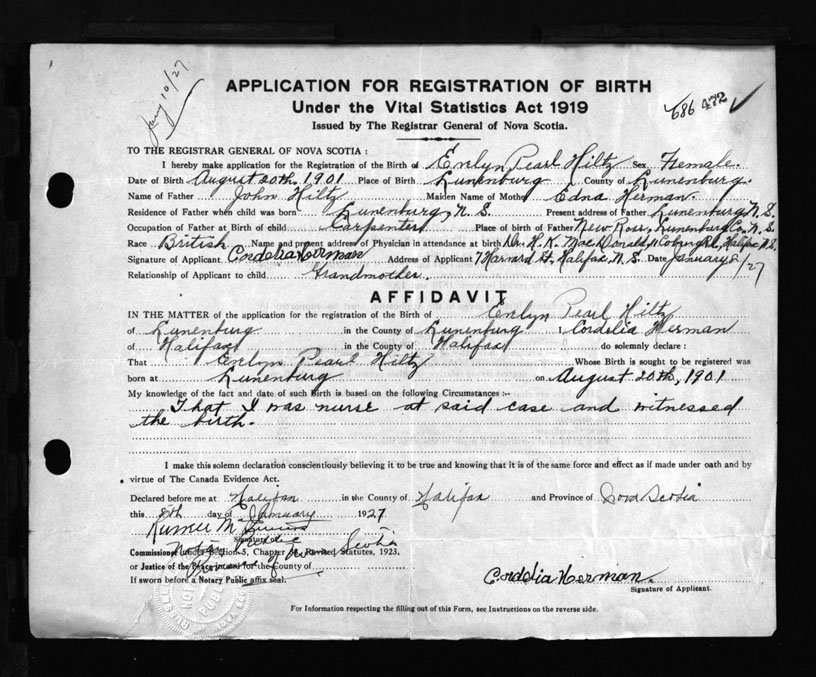 Jany 10/27
686 472 ✓
APPLICATION FOR REGISTRATION OF BIRTH
Under the Vital Statistics Act 1919
Issued by The Registrar General of Nova Scotia.
TO THE REGISTRAR GENERAL OF NOVA SCOTIA :
I hereby make application for the Registration of the Birth of Evelyn Pearl Hiltz Sex Female.
Date of Birth August 20th, 1901 Place of Birth Lunenburg County of Lunenburg.
Name of Father John Hiltz Maiden Name of Mother Edna Herman.
Residence of Father when child was born Lunenburg, N. S. Present address of Father Lunenburg N. S.
Occupation of Father at Birth of child Carpenter Place of birth of Father New Ross, Lunenburg Co. N. S.
Race British Name and present address of Physician in attendance at birth Dr. H. K. MacDonald, Coburg Rd., Halifax N. S.
Signature of Applicant Cordelia Herman Address of Applicant 7 Harvard St, Halifax, N. S. Date January 8/27
Relationship of Applicant to child Grandmother.
AFFIDAVIT
IN THE MATTER of the application for the registration of the Birth of Evelyn Pearl Hiltz
of Lunenburg in the County of Lunenburg I, Cordelia Herman
of Halifax in the County of Halifax do solemnly declare :
That Evelyn Pearl Hiltz Whose Birth is sought to be registered was
born at Lunenburg on August 20th, 1901
My knowledge of the fact and date of such Birth is based on the following Circumstances :-
That I was nurse at said case and witnessed
the birth.
I make this solemn declaration conscientiously believing it to be true and knowing that it is of the same force and effect as if made under oath and by
virtue of The Canada Evidence Act.
Declared before me at Halifax in the County of Halifax and Province of Nova Scotia
this 8th day of January 1927
Russell Mc
Signature
Notary Public
Commissioner (under Section 5, Chapter Revised Statutes, 1923,
Province of Nova Scotia
or Justice of the Peace in and for the County of
If sworn before a Notary Public affix seal.
Cordelia Herman
Signature of Applicant.
For Information respecting the filling out of this Form, see Instructions on the reverse side.